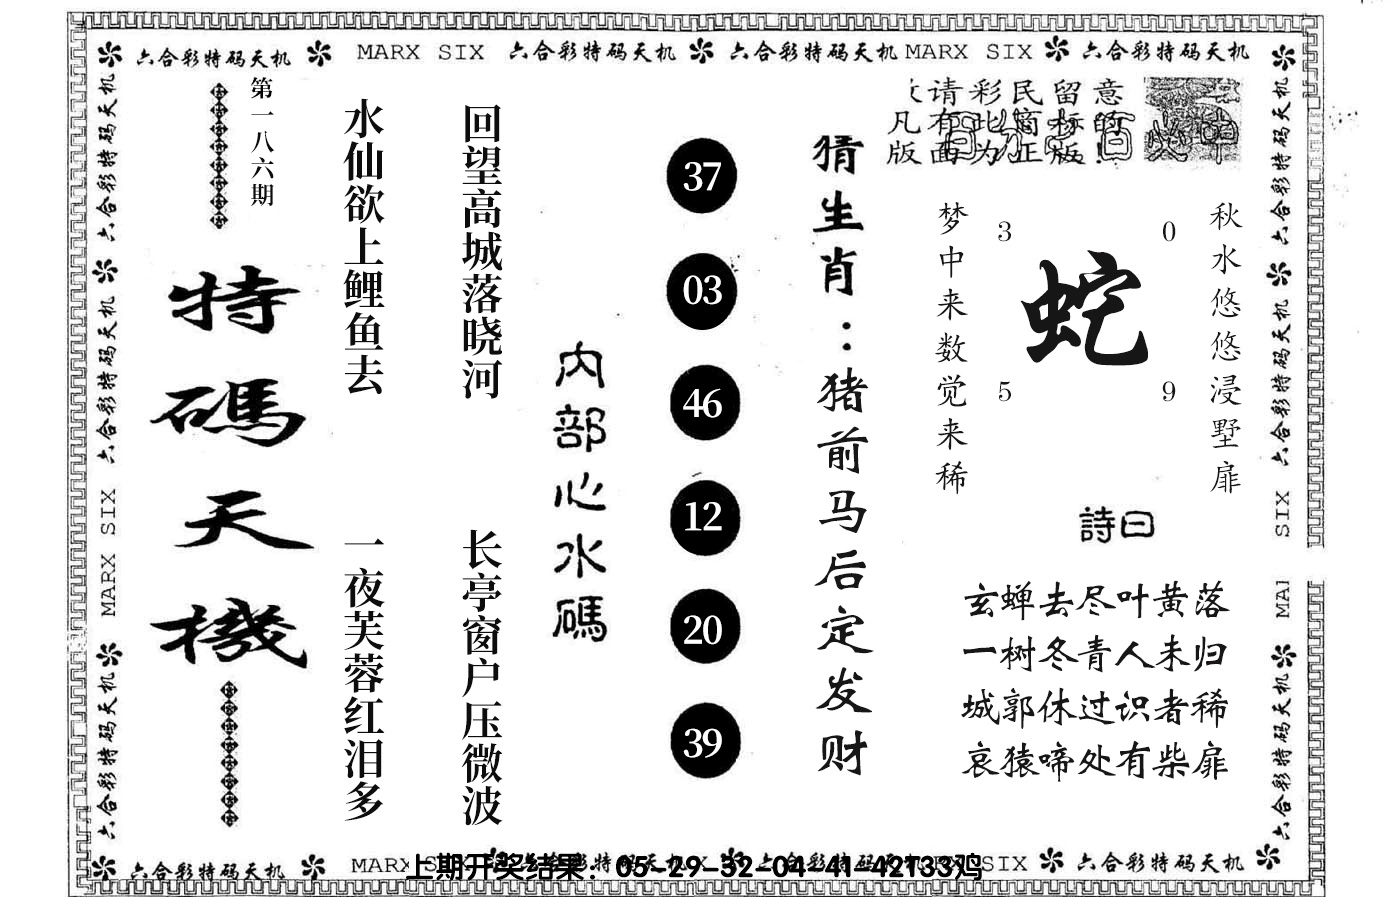 六合彩特码天机 MARX SIX 六合彩特码天机 六合彩特码天机 MARX SIX 六合彩特码天机
第一八六期
特碼天機
水仙欲上鲤鱼去
一夜芙蓉红泪多
回望高城落晓河
长亭窗户压微波
内部心水碼
37
03
46
12
20
39
猜生肖：猪前马后定发财
请彩民留意
凡有此商标的
版面为正版!
梦中来数觉来稀
3
0
蛇
5
9
秋水悠悠浸墅扉
詩曰
玄蝉去尽叶黄落
一树冬青人未归
城郭休过识者稀
哀猿啼处有柴扉
六合彩特码天机
六合彩特码天机
MARX SIX
六合彩特码天机
六合彩特码天机
六合彩特码天机
SIX
MAI
六合彩特码天机
六合彩特码天机 MARX SIX 六合彩特码天机 六合彩特码天机 MARX SIX 六合彩特码天机
上期开奖结果：05-29-32-04-41-42T33鸡